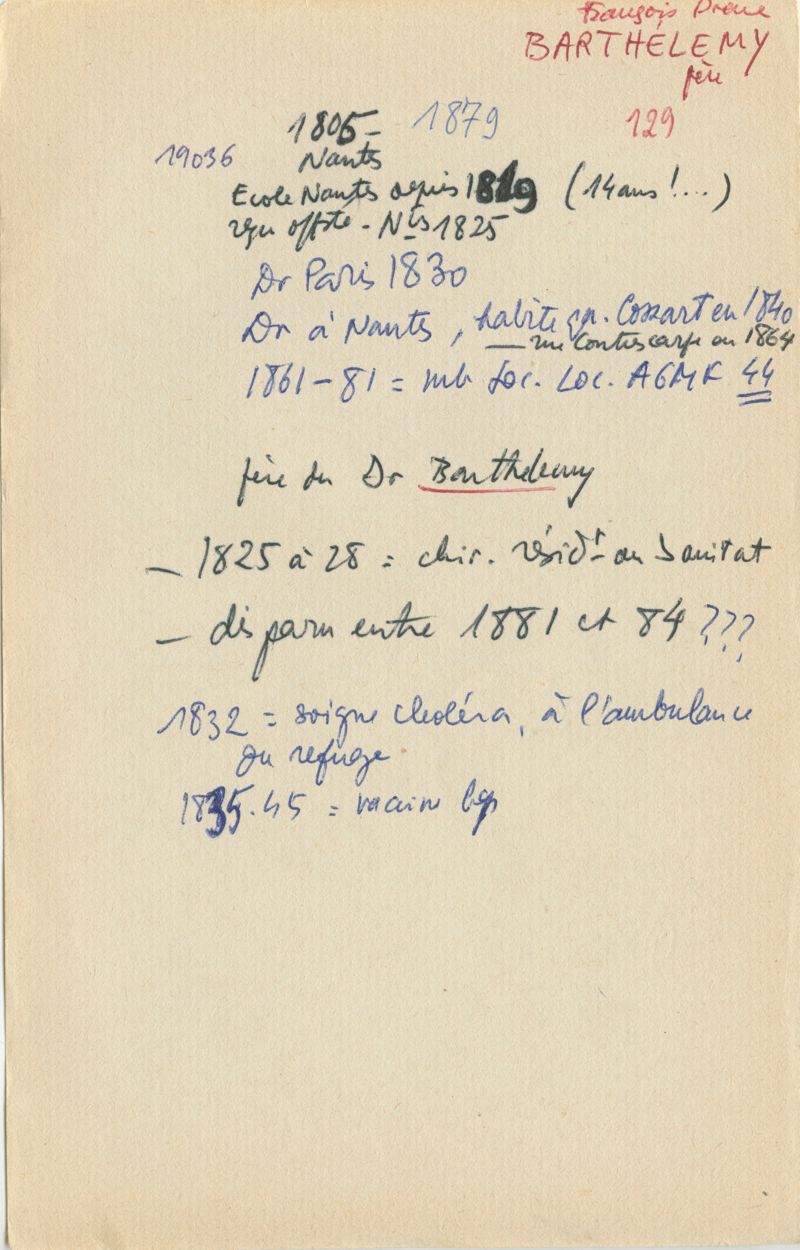 François
BARTHÉLEMY
père
1805 - 1879
129
19036
Nantes
Ecole Nantes depuis 1819 (14 ans !...)
reçu - Nts 1825
Dr Paris 1830
Dr à Nantes, habite q. Cossart en 1840
— rue Contrescarpe en 1864
1861-81 = mb Soc. Loc. AGMF 44
père du Dr Barthelemy
— 1825 à 28 = chir. résidt au Sanitat
— disparu entre 1881 et 84 ???
1832 = soigne choléra, à l'ambulance
du refuge
1835.45 = vaccine bcp